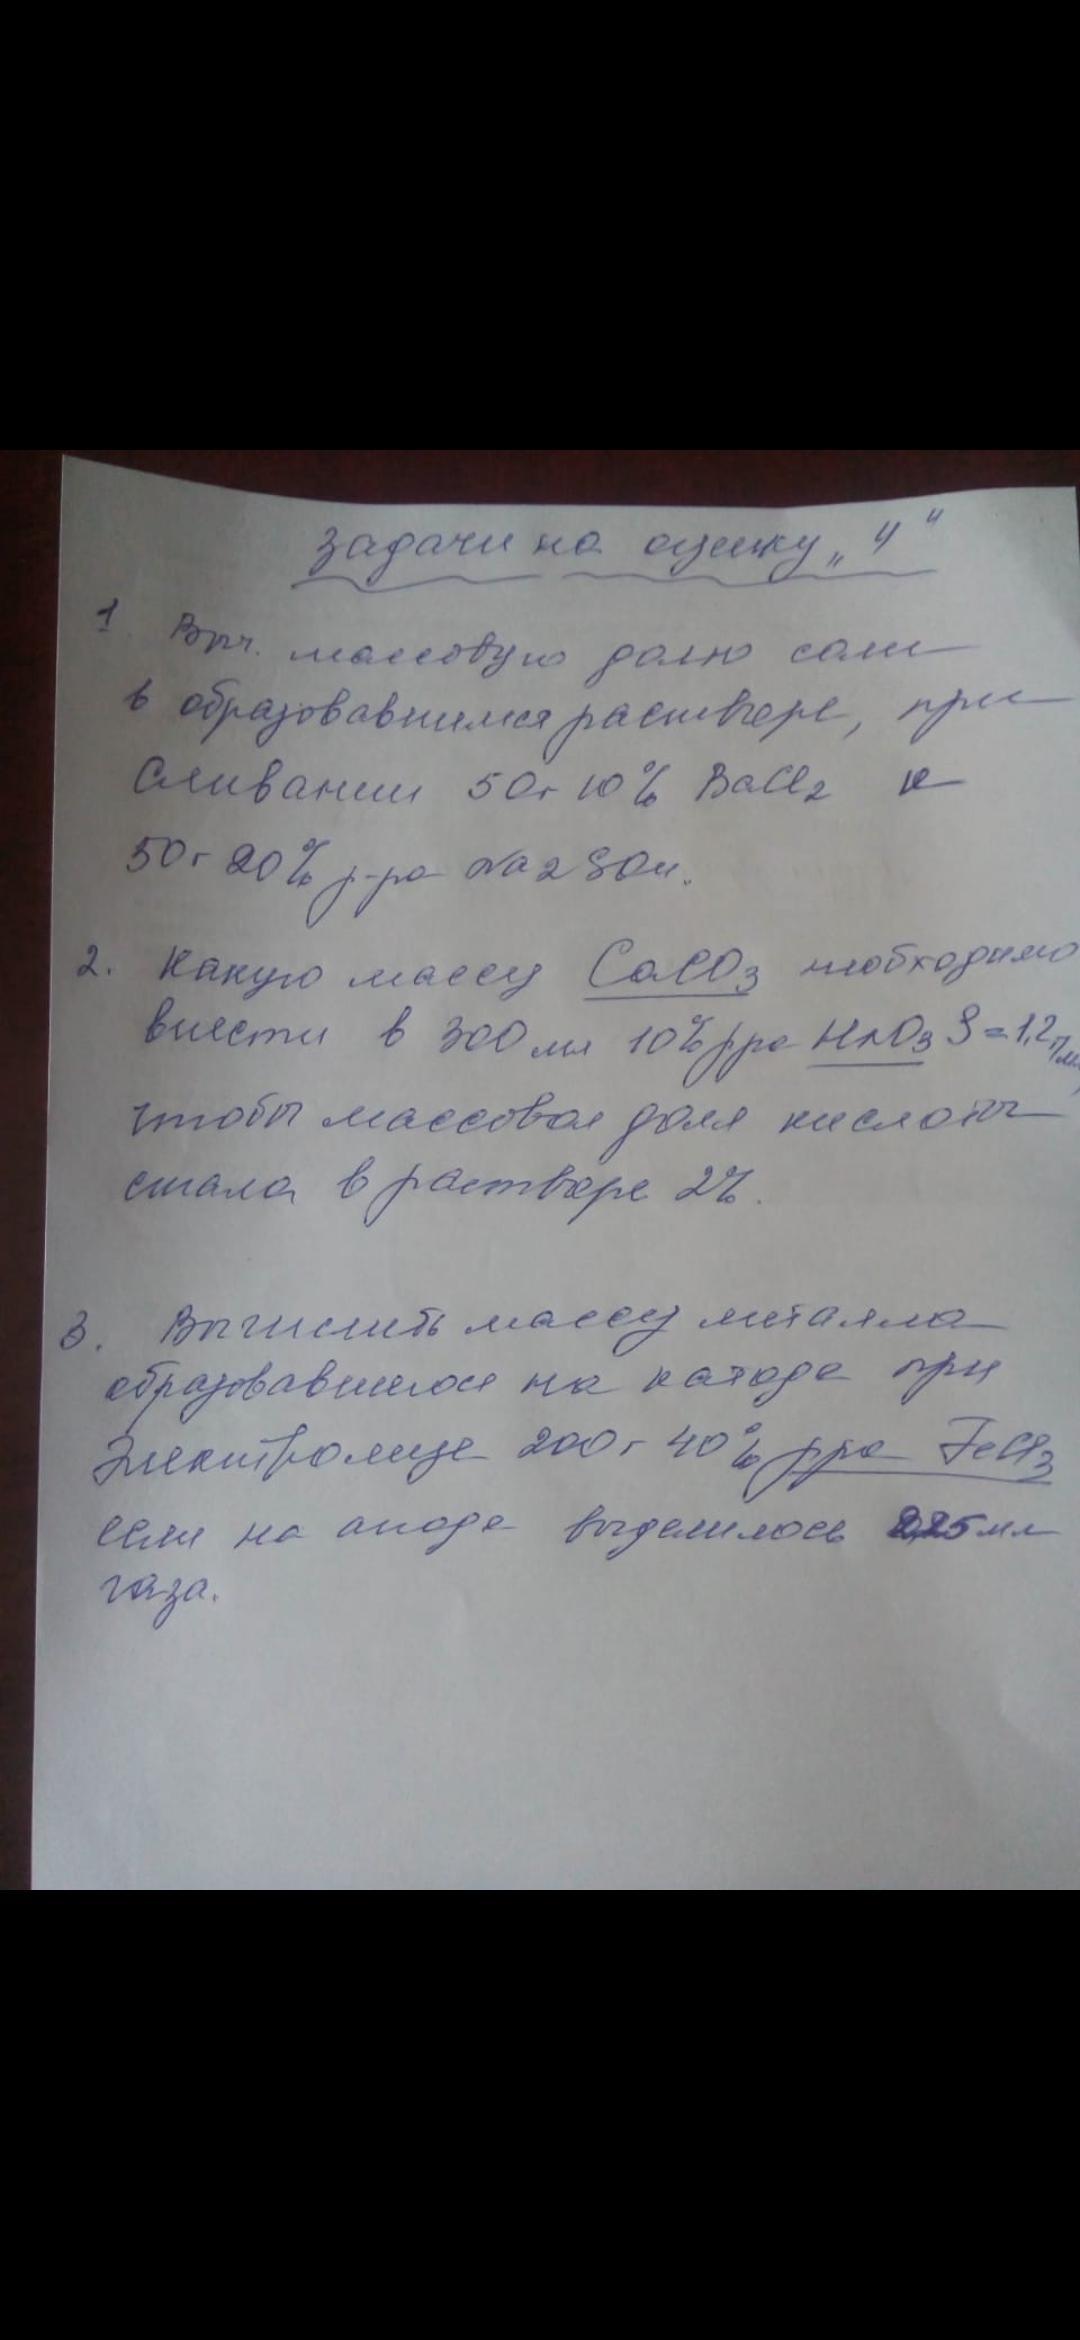 Задачи на оценку „4"
1. Выч. массовую долю соли
в образовавшимся растворе, при
сливании 50г 10% BaCl2 и
50г 20% р-ра Na2SO4.
2. Какую массу CaCO3 необходимо
внести в 300 мл 10% р-ра HNO3 ρ=1,2г/мл,
чтобы массовая доля кислоты
стала в растворе 2%.
3. Вычислить массу металла
образовавшегося на катоде при
Электролизе 200г 40% р-ра FeCl3
если на аноде выделилось мл
газа.